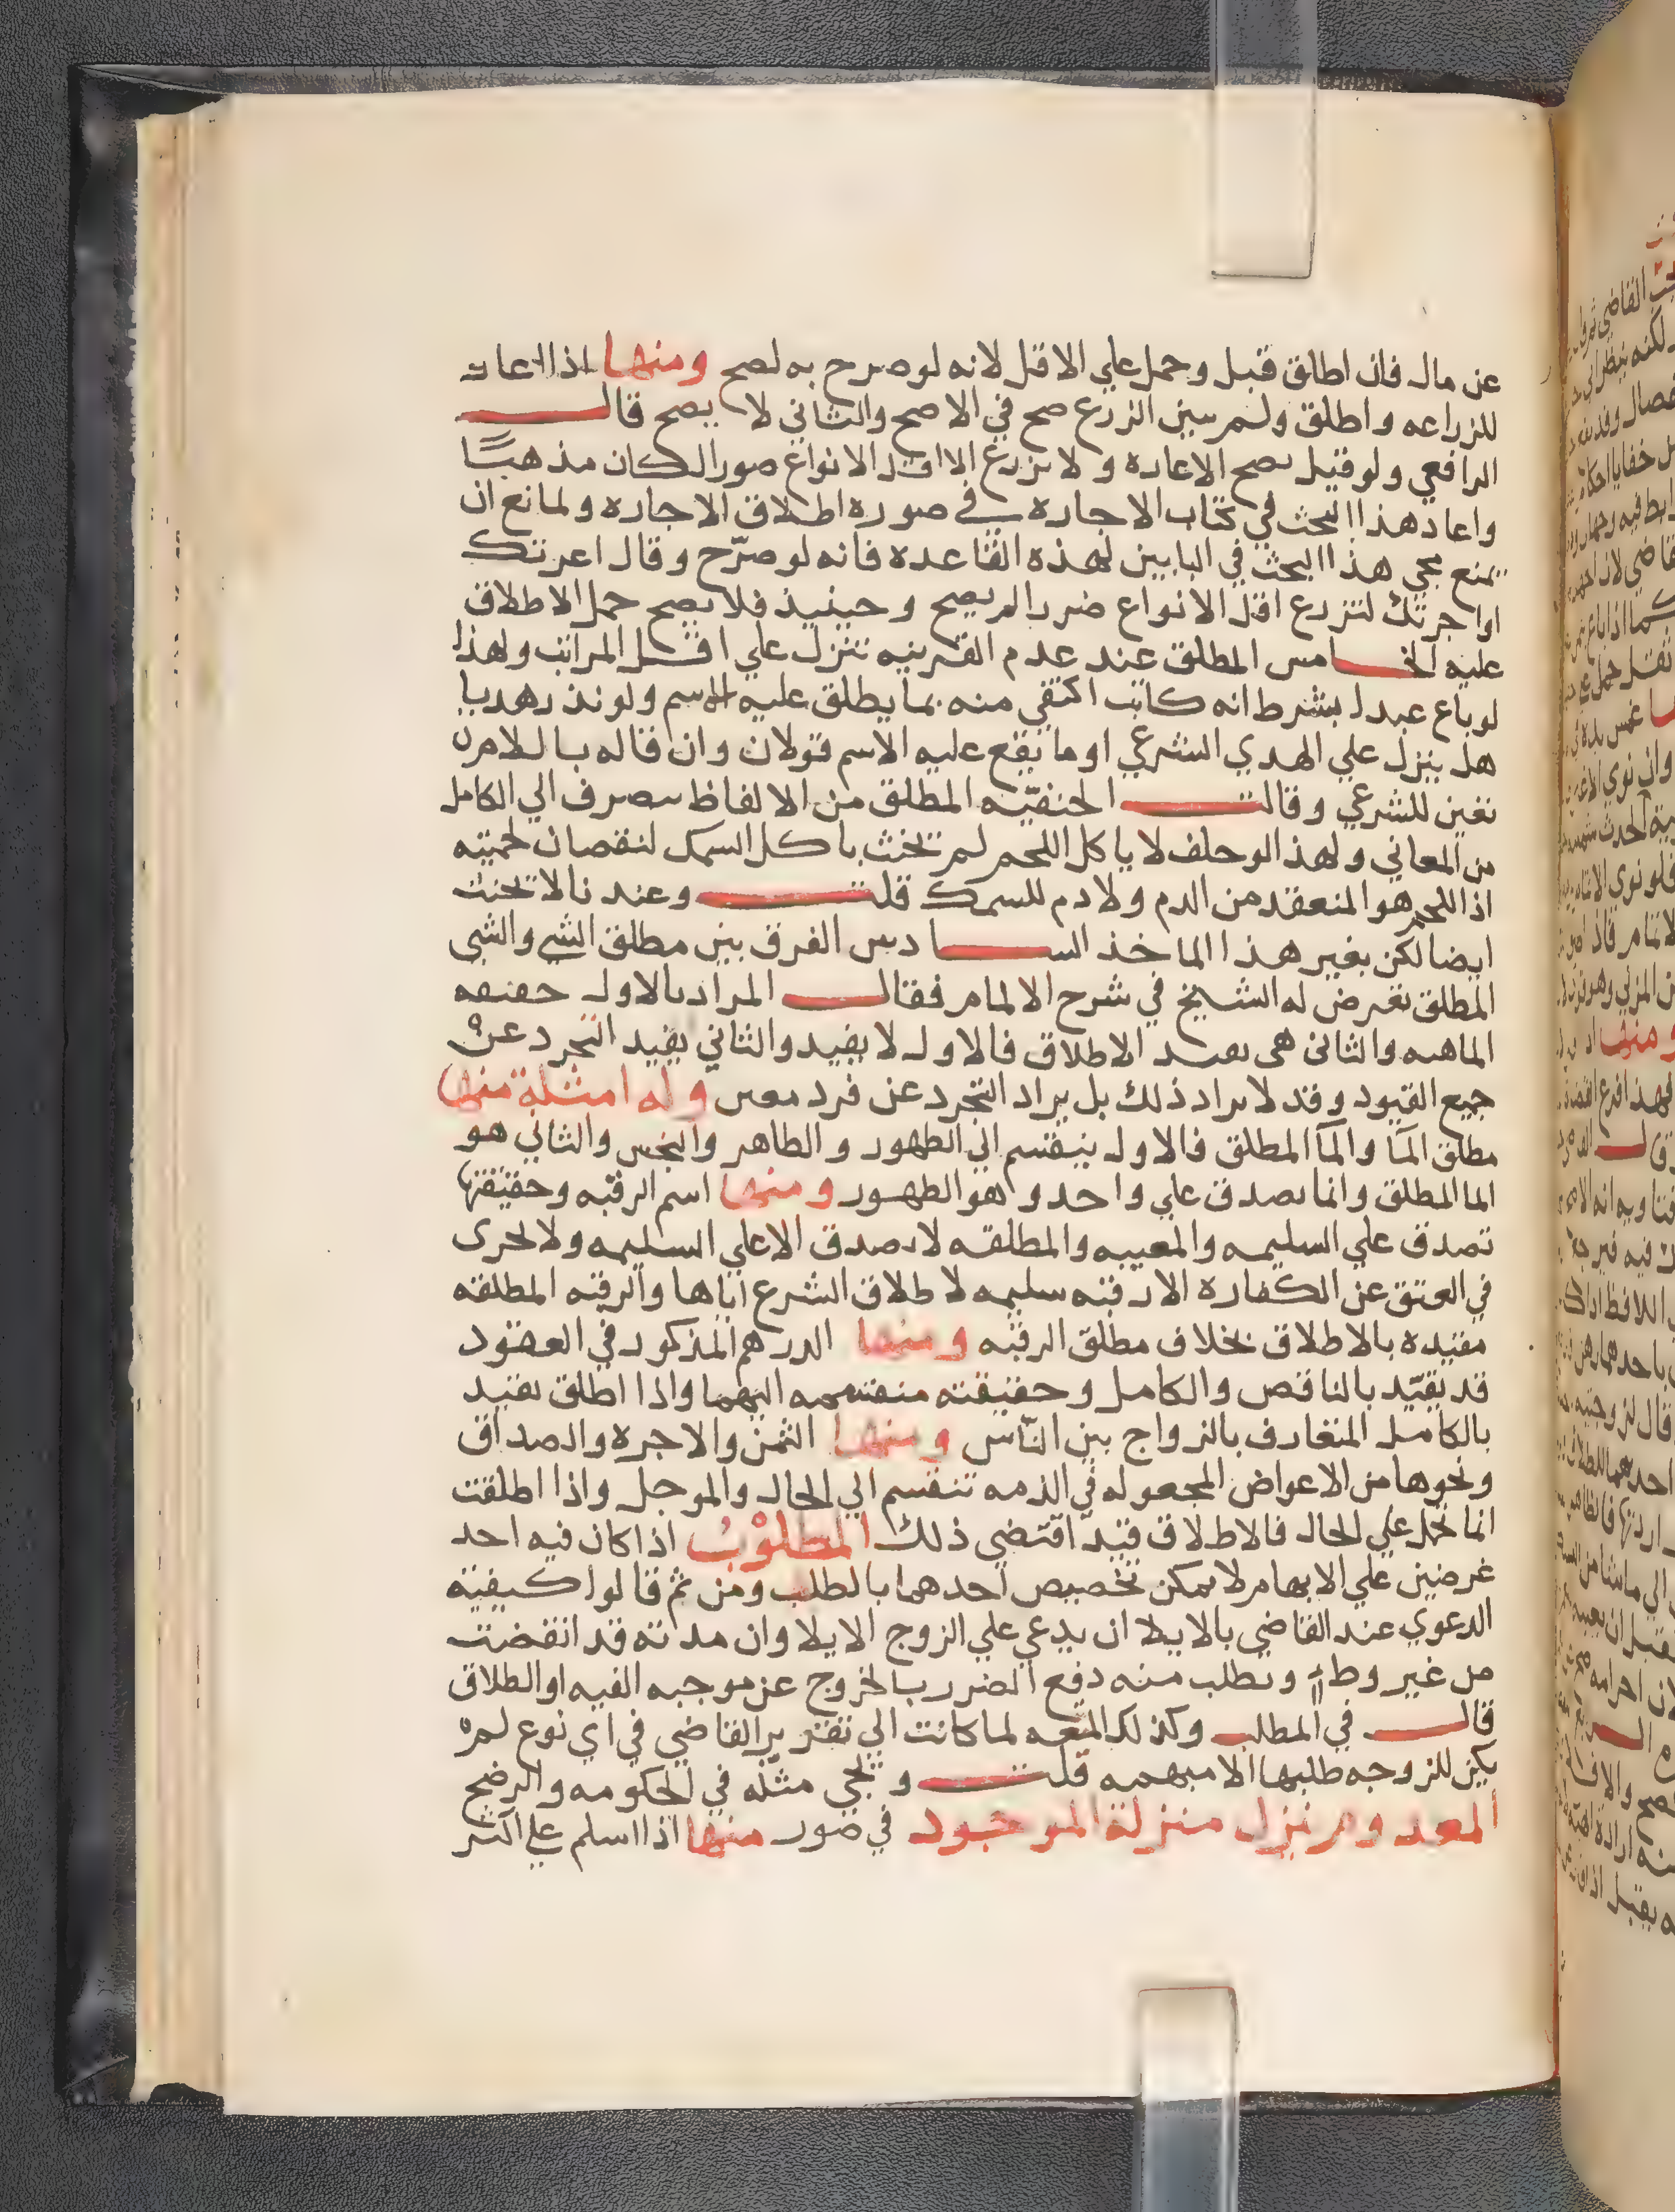 عن مال فان اطلق قبل وحمل علي الاقل لانه لو صرح به لصح ومنها اذا اعار
للزراعه واطلق ولم يبين الزرع صح في الاصح والثاني لا يصح قال
الرافعي ولو قيل يصح الاعاره ولا يزرع الا اقل الانواع ضررا لكان مذهبًا
واعاد هذا البحث في كتاب الاجاره في صوره اطلاق الاجاره ولمانع ان
يمنع مجي هذا البحث في البابين لهذه القاعده فانه لو صرّح وقال اعرتك
او اجرتك لتزرع اقل الانواع ضررا لم يصح وحينيذ فلا يصح حمل الاطلاق
عليه الخامس المطلق عند عدم القرينه تنزل علي اقل المراتب ولهذا
لو باع عبدا بشرط انه كاتب اكتفي منه بما يطلق عليه الاسم ولو نذر هديا
هل ينزل علي الهدي الشرعي او ما يقع عليه الاسم قولان وان قاله باللام
تعين للشرعي وقالت الحنفيّه المطلق من الالفاظ يصرف الي الكامل
من المعاني ولهذا لو حلف لا ياكل اللحم لم يحنث باكل السمك لنقصان لحميته
اذ اللحم هو المنعقد من الدم ولا دم للسمك قلت وعندنا لا يحنث
ايضا لكن بغير هذا الماخذ السادس الفرق بين مطلق الشي والشي
المطلق تعرض له الشيخ في شرح الالمام فقال المراد بالاول حقيقه
الماهيه والثاني هي بقيد الاطلاق فالاول لا يفيد والثاني يفيد التجرد عن
جميع القيود وقد لا يراد ذلك بل يراد التجرد عن فرد معين وله امثلة منها
مطلق المآ والمآ المطلق فالاول ينقسم الي الطهور والطاهر والنجس والثاني هو
الما المطلق وانما يصدق علي واحد وهو الطهور ومنها اسم الرقبه وحقيقتها
تصدق علي السليمه والمعيبه والمطلقه لا يصدق الا علي السليمه ولا يجزي
في العتق عن الكفاره الا رقبه سليمه لاطلاق الشرع اياها والرقبه المطلقه
مقيده بالاطلاق بخلاف مطلق الرقبه ومنها الدرهم المذكور في العقود
قد يقيّد بالناقص والكامل وحقيقته منقسمه اليهما واذا اطلق تقيد
بالكامل المتعارف بالرواج بين النّاس ومنها الثمن والاجره والصداق
ونحوها من الاعواض المجعوله في الذمه تنقسم الي الحال والموجل واذا اطلقت
انما تحمل علي الحال فالاطلاق قيد اقتضي ذلك المطلوْبُ اذا كان فيه احد
غرضين علي الابهام لا يمكن تخصيص احدهما بالطلب ومن ثم قالوا كيفيته
الدعوي عند القاضي بالايلا ان يدعي علي الزوج الايلا وان مدته قد انقضت
من غير وطء وتطلب منه دفع الضرر بالخروج عن موجبه الفيه او الطلاق
قال في المطلب وكذلك المتعه لما كانت الي تقدير القاضي في اي نوع لم
يكن للزوجه طلبها الا مبهمه قلت ويجي مثله في الحكومه والرضخ
المعدوم ينزل منزلة الموجود في صور منها اذا اسلم علي اكثر